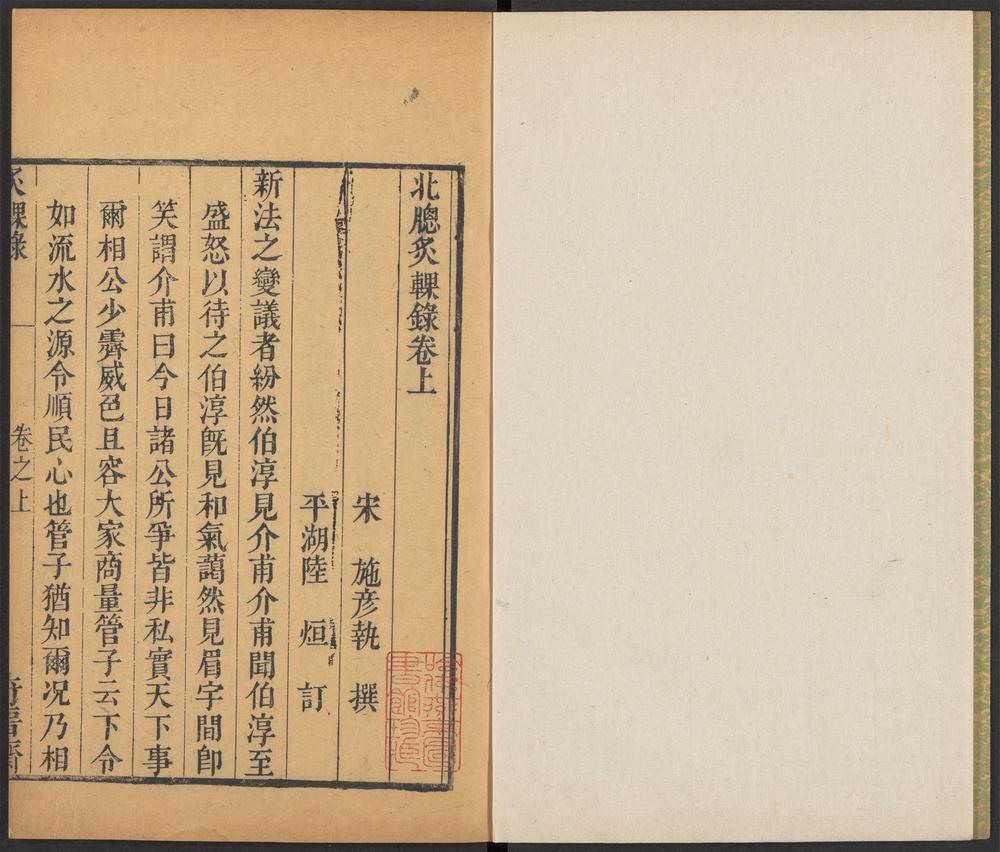 北牕炙輠錄卷上
宋 施彦執 撰
平湖陸 烜 訂
新法之變議者紛然伯淳見介甫介甫聞伯淳至
盛怒以待之伯淳旣見和氣藹然見眉宇間卽
笑謂介甫曰今日諸公所爭皆非私實天下事
爾相公少霽威色且容大家商量管子云下令
如流水之源令順民心也管子猶知爾况乃相
炙輠錄 一 卷之上 奇晋齋